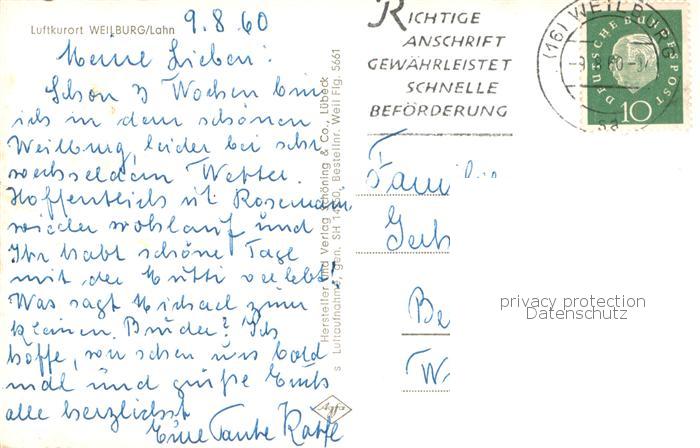 Luftkurort WEILBURG/Lahn
9.8.60
Meine Lieben!
Schon 3 Wochen bin
ich in dem schönen
Weilburg, leider bei sehr
wechselndem Wetter.
Hoffentlich ist Rosemarie
wieder wohlauf und
Ihr habt schöne Tage
mit der Mutti verlebt!
Was sagt Michael zum
kleinen Bruder? Ich
hoffe, wir sehen uns bald
mal und grüße Euch
alle herzlichst
Eure Tante Käthe
Hersteller und Verlag Schöning & Co., Lübeck
s Luftaufnahme, gen. SH 14 Bestellnr. Weil Flg. 5661
Agfa
RICHTIGE
ANSCHRIFT
GEWÄHRLEISTET
SCHNELLE
BEFÖRDERUNG
(16) WEILBURG
-9.8.60-
DEUTSCHE BUNDESPOST
10
Fam
Be
W.
privacy protection
Datenschutz